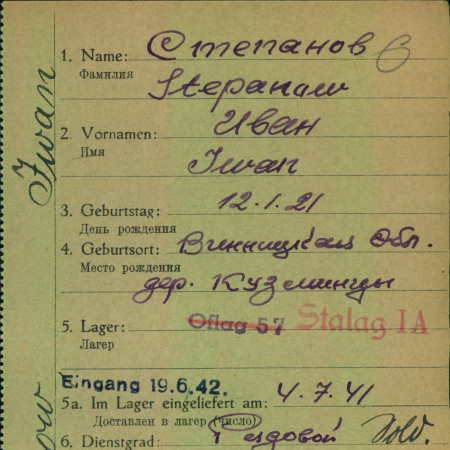 1. Name: Степанов 6
Фамилия
Stepanow
2. Vornamen: Иван
Имя
Iwan
3. Geburtstag: 12.1.21
День рождения
4. Geburtsort: Винницкая Обл.
Место рождения
дер. Кузминцы
5. Lager: Oflag 57 Stalag IA
Лагерь
Eingang 19.6.42.
5a. Im Lager eingeliefert am: 4.7.41
Доставлен в лагерь (число)
6. Dienstgrad: ездовой Sold.
Iwan
ow